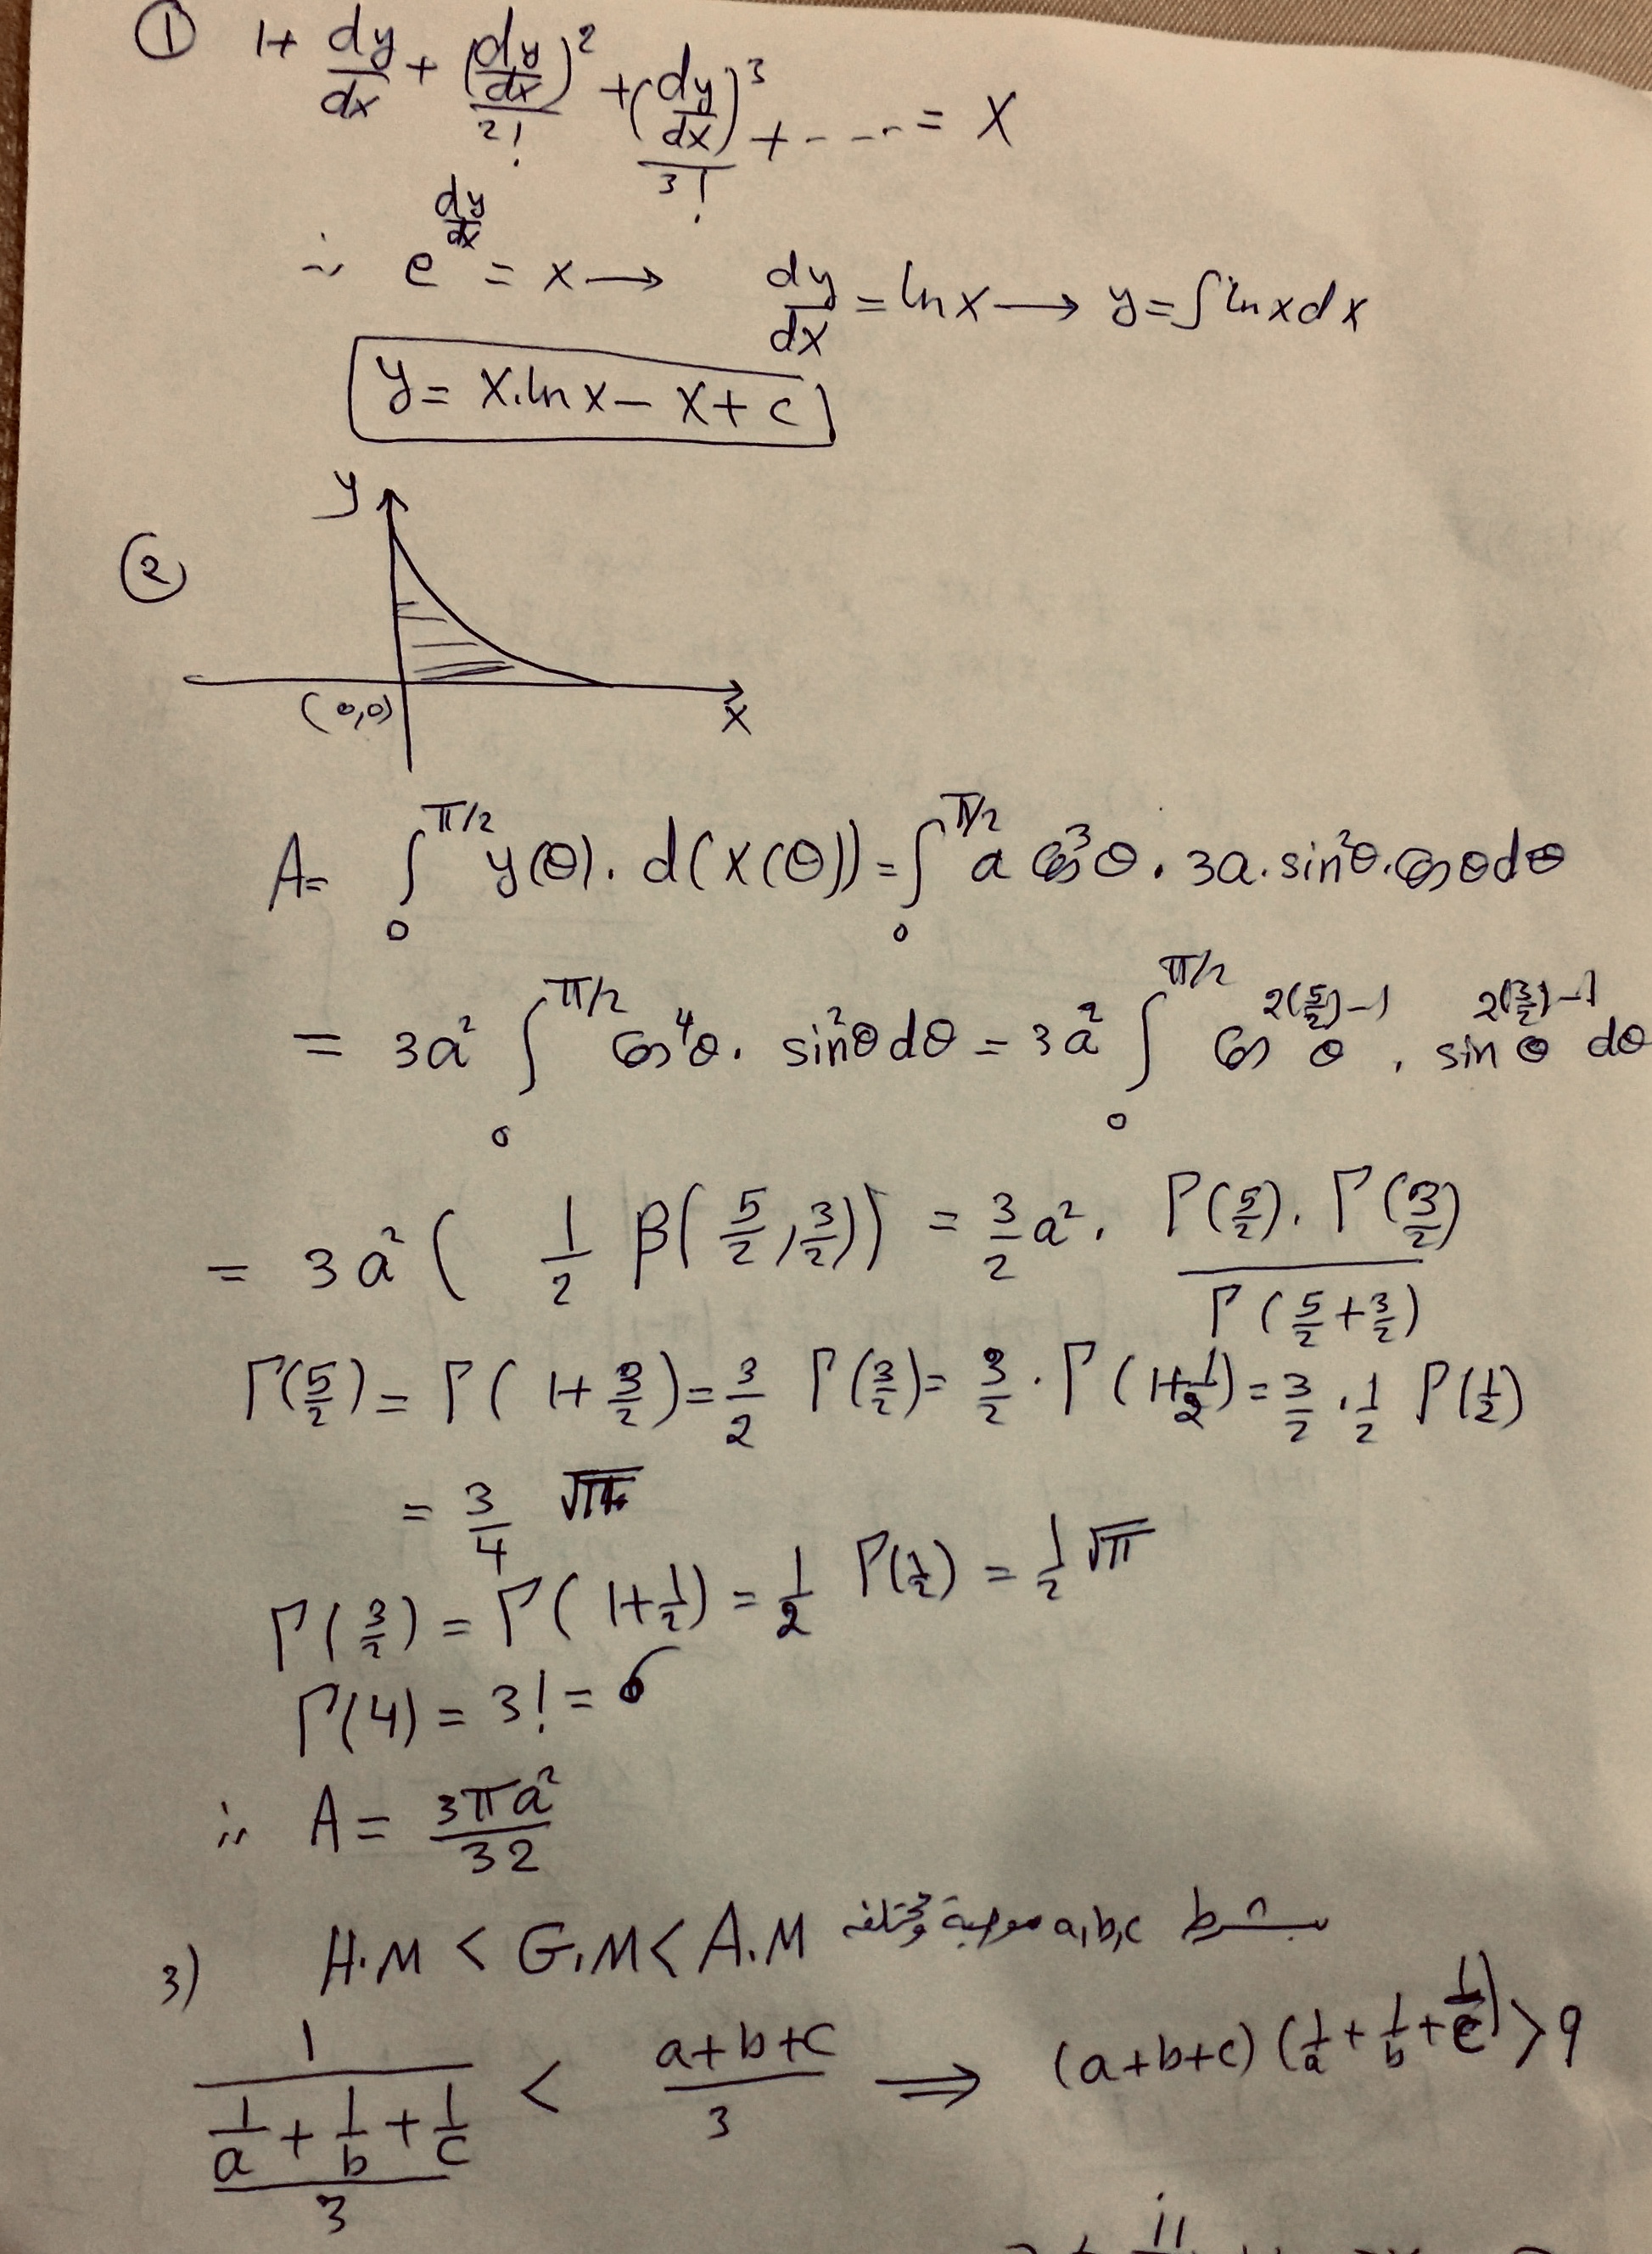 ① 1 + dy/dx + (dy/dx)²/2! + (dy/dx)³/3! + ---- = x
∴ e^(dy/dx) = x → dy/dx = ln x → y = ∫ ln x dx
y = x.ln x − x + c
②
y
(0,0)
x
A = ∫₀^(π/2) y(θ). d(x(θ)) = ∫₀^(π/2) a cos³θ . 3a. sin²θ. cosθ dθ
= 3a² ∫₀^(π/2) cos⁴θ. sin²θ dθ = 3a² ∫₀^(π/2) cos^(2(5/2)−1) θ . sin^(2(3/2)−1) θ dθ
= 3a² ( 1/2 β(5/2, 3/2)) = 3/2 a² . Γ(5/2). Γ(3/2) / Γ(5/2 + 3/2)
Γ(5/2) = Γ(1 + 3/2) = 3/2 Γ(3/2) = 3/2 . Γ(1+1/2) = 3/2 . 1/2 Γ(1/2)
= 3/4 √π
Γ(3/2) = Γ(1+1/2) = 1/2 Γ(1/2) = 1/2 √π
Γ(4) = 3! = 6
∴ A = 3πa²/32
3) H.M < G.M < A.M بشرط a,b,c موجبة ومختلفه
1/((1/a + 1/b + 1/c)/3) < (a+b+c)/3 ⟹ (a+b+c)(1/a + 1/b + 1/c) > 9